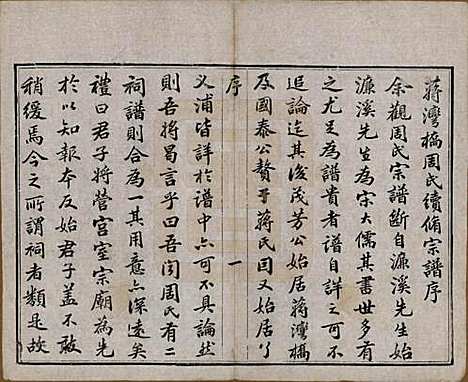 蔣灣橋周氏續脩宗譜序
余觀周氏宗譜斷自濂溪先生始
濂溪先生為宋大儒其書世多有
之尤足為譜貴者譜自詳之可不
追論迄其後茂芳公始居蔣灣橋
及國泰公贅于蔣氏因又始居丫
序 一
义浦皆詳於譜中亦可不具論然
則吾將曷言乎曰吾闻周氏有二
祠譜則合為一其用意亦深遠矣
禮曰君子將營宫室宗廟為先
於以知報本反始君子盖不敢
稍缓焉今之所謂祠者類是故